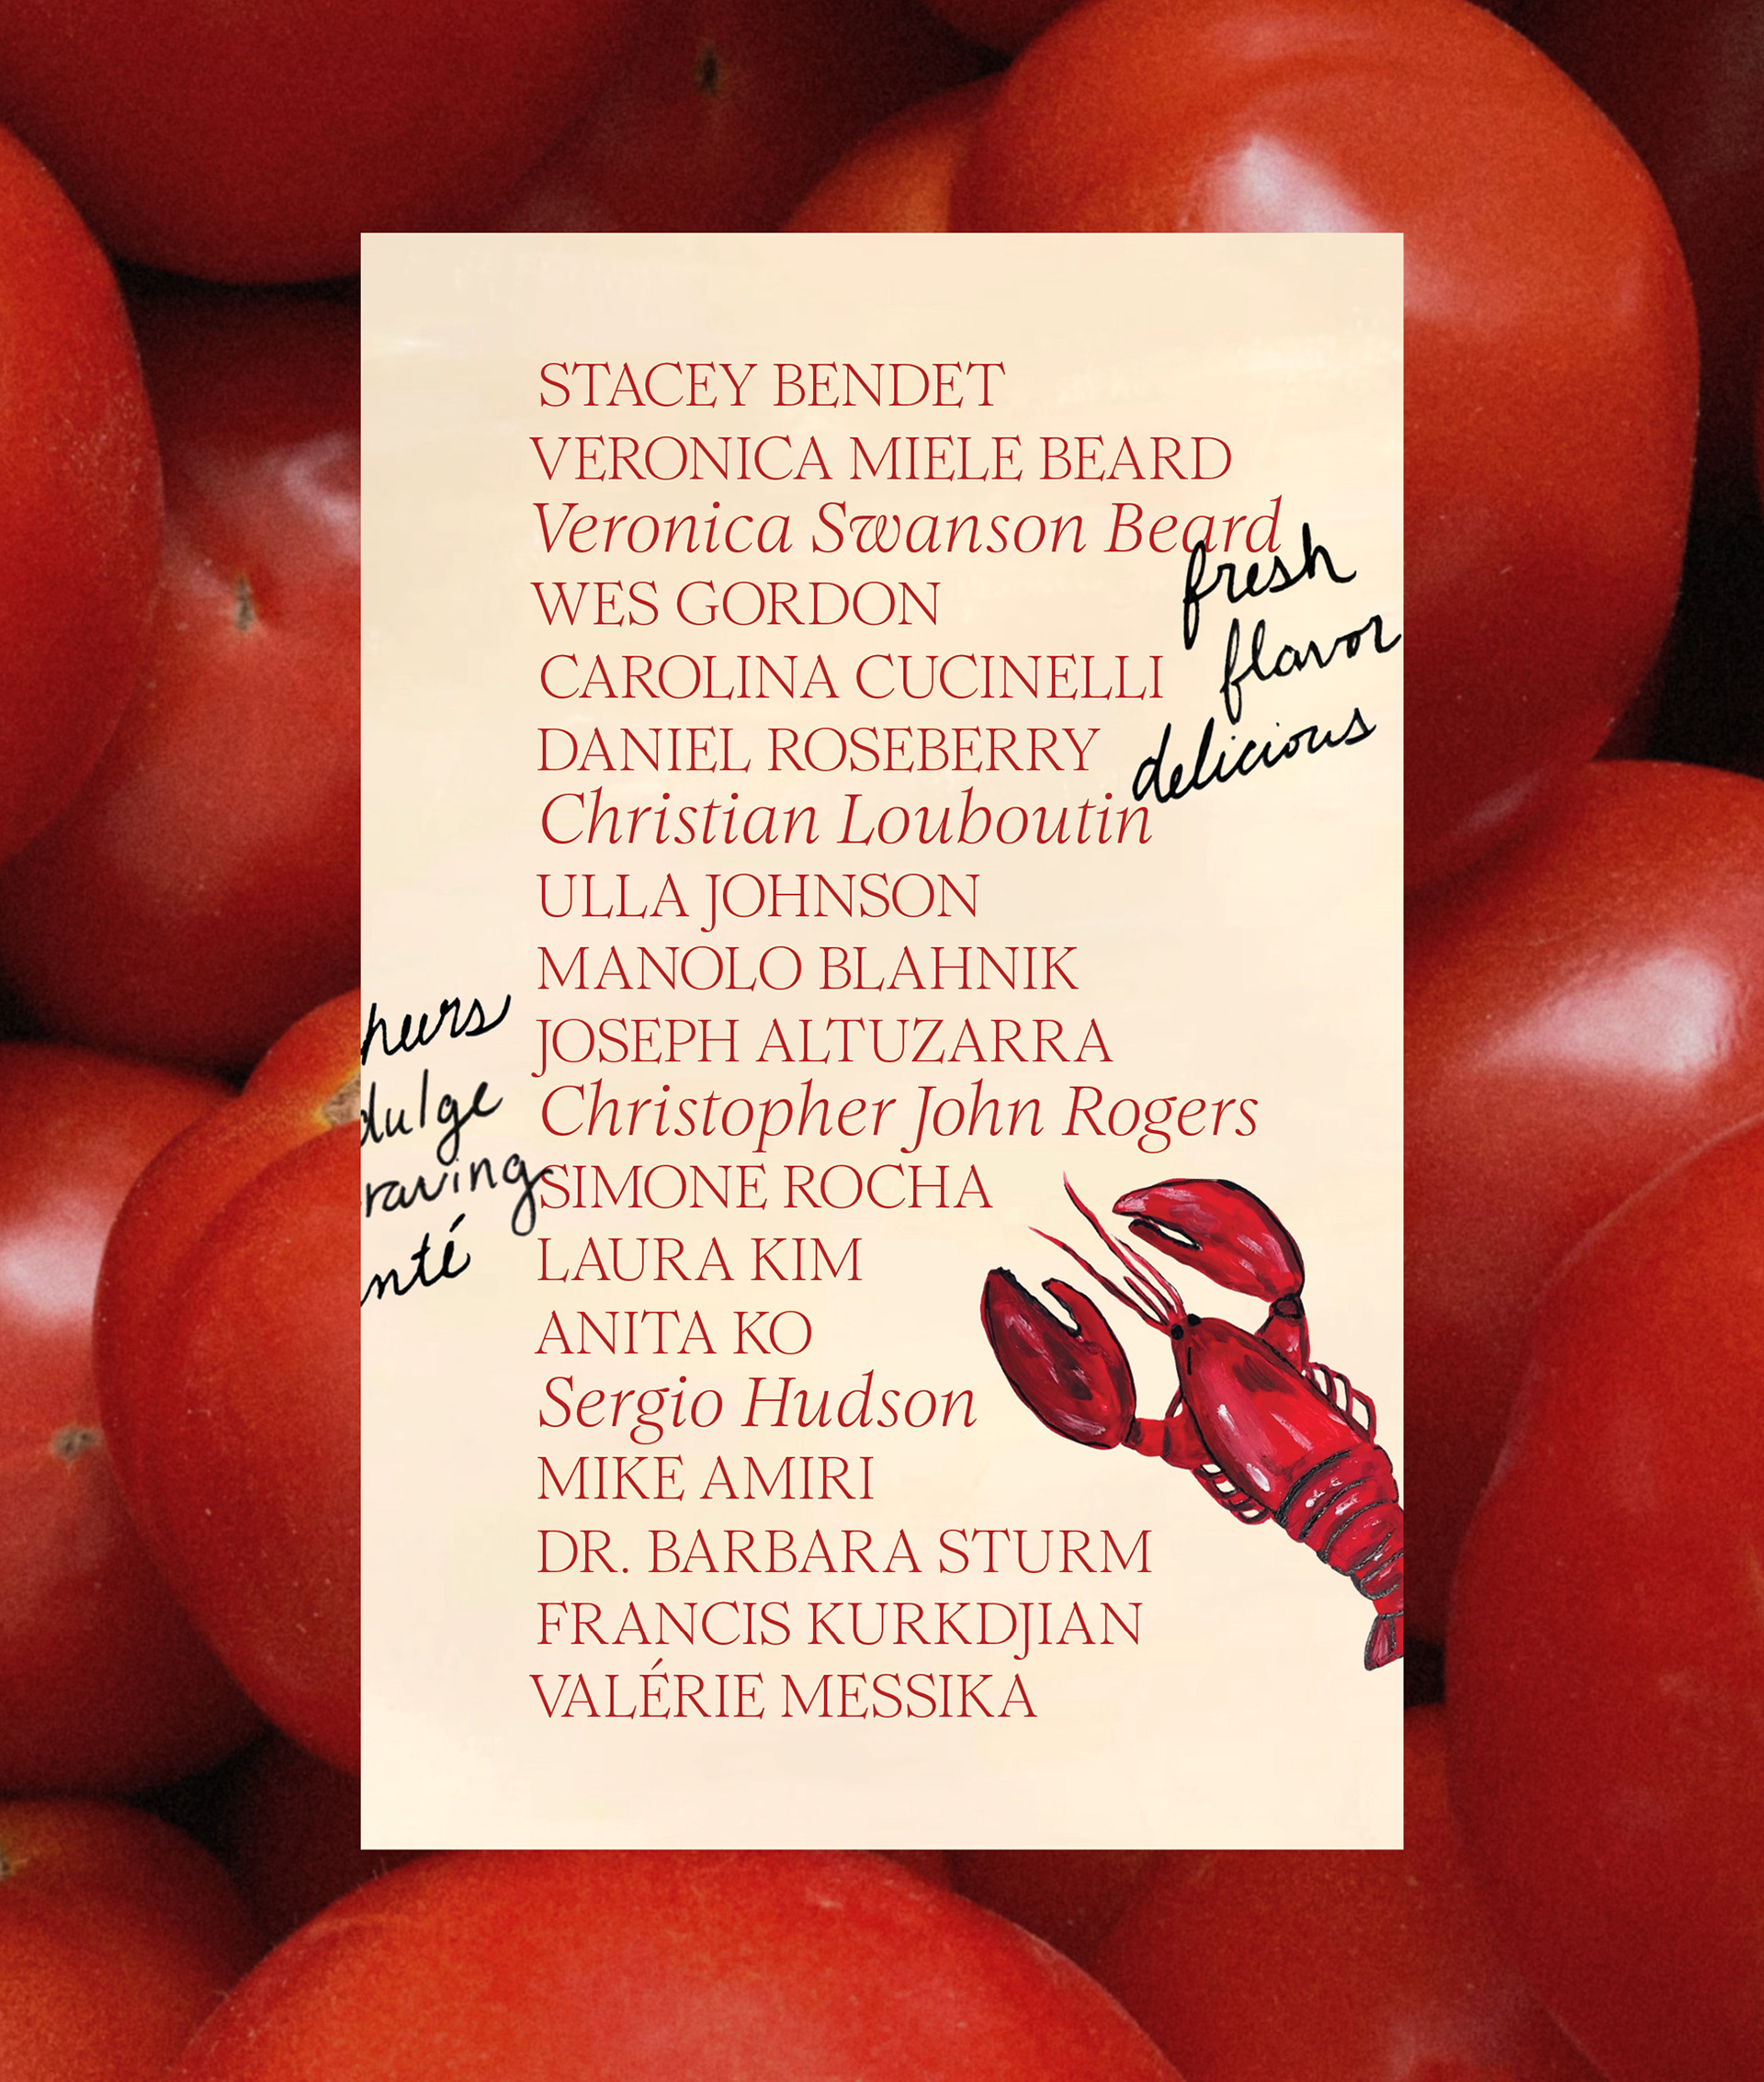 STACEY BENDET
VERONICA MIELE BEARD
Veronica Swanson Beard
fresh
WES GORDON
flavor
CAROLINA CUCINELLI
delicious
DANIEL ROSEBERRY
Christian Louboutin
ULLA JOHNSON
MANOLO BLAHNIK
JOSEPH ALTUZARRA
dulge
Christopher John Rogers
raving
SIMONE ROCHA
nté
LAURA KIM
ANITA KO
Sergio Hudson
MIKE AMIRI
DR. BARBARA STURM
FRANCIS KURKDJIAN
VALÉRIE MESSIKA